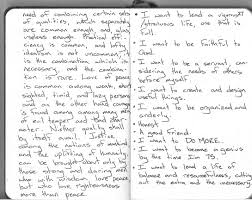 need of combining certain sets
of qualities, which separately
are common enough and alas
useless enough. Practical effi-
ciency is common, and lofty
idealism is not uncommon; it
is the combination which is
necessary, and the combina-
tion is rare. Love of peace
is common among weak, short-
sighted, timid, and lazy persons;
and on the other hand courage
is found among many men
of evil temper and bad char-
acter. Neither quality shall
by itself avail. Justice
among the nations of mankind
and the uplifting of humanity
can be brought about only by
those strong and daring men
who with wisdom love peace,
but who love righteousness
more than peace.
• I want to lead a vigorous
life, one that is
full
• I want to be faithful to
God.
• I want to be a servant, con-
sidering the needs of others
before myself.
• I want to create and design
useful things.
• I want to be organized and
orderly.
• Honest
• A good friend.
• I want to DO MORE.
• I want to be
by the time I'm 75.
• I want to lead a life of
balance and resourcefulness, cutting
out the extra and the unnecessary